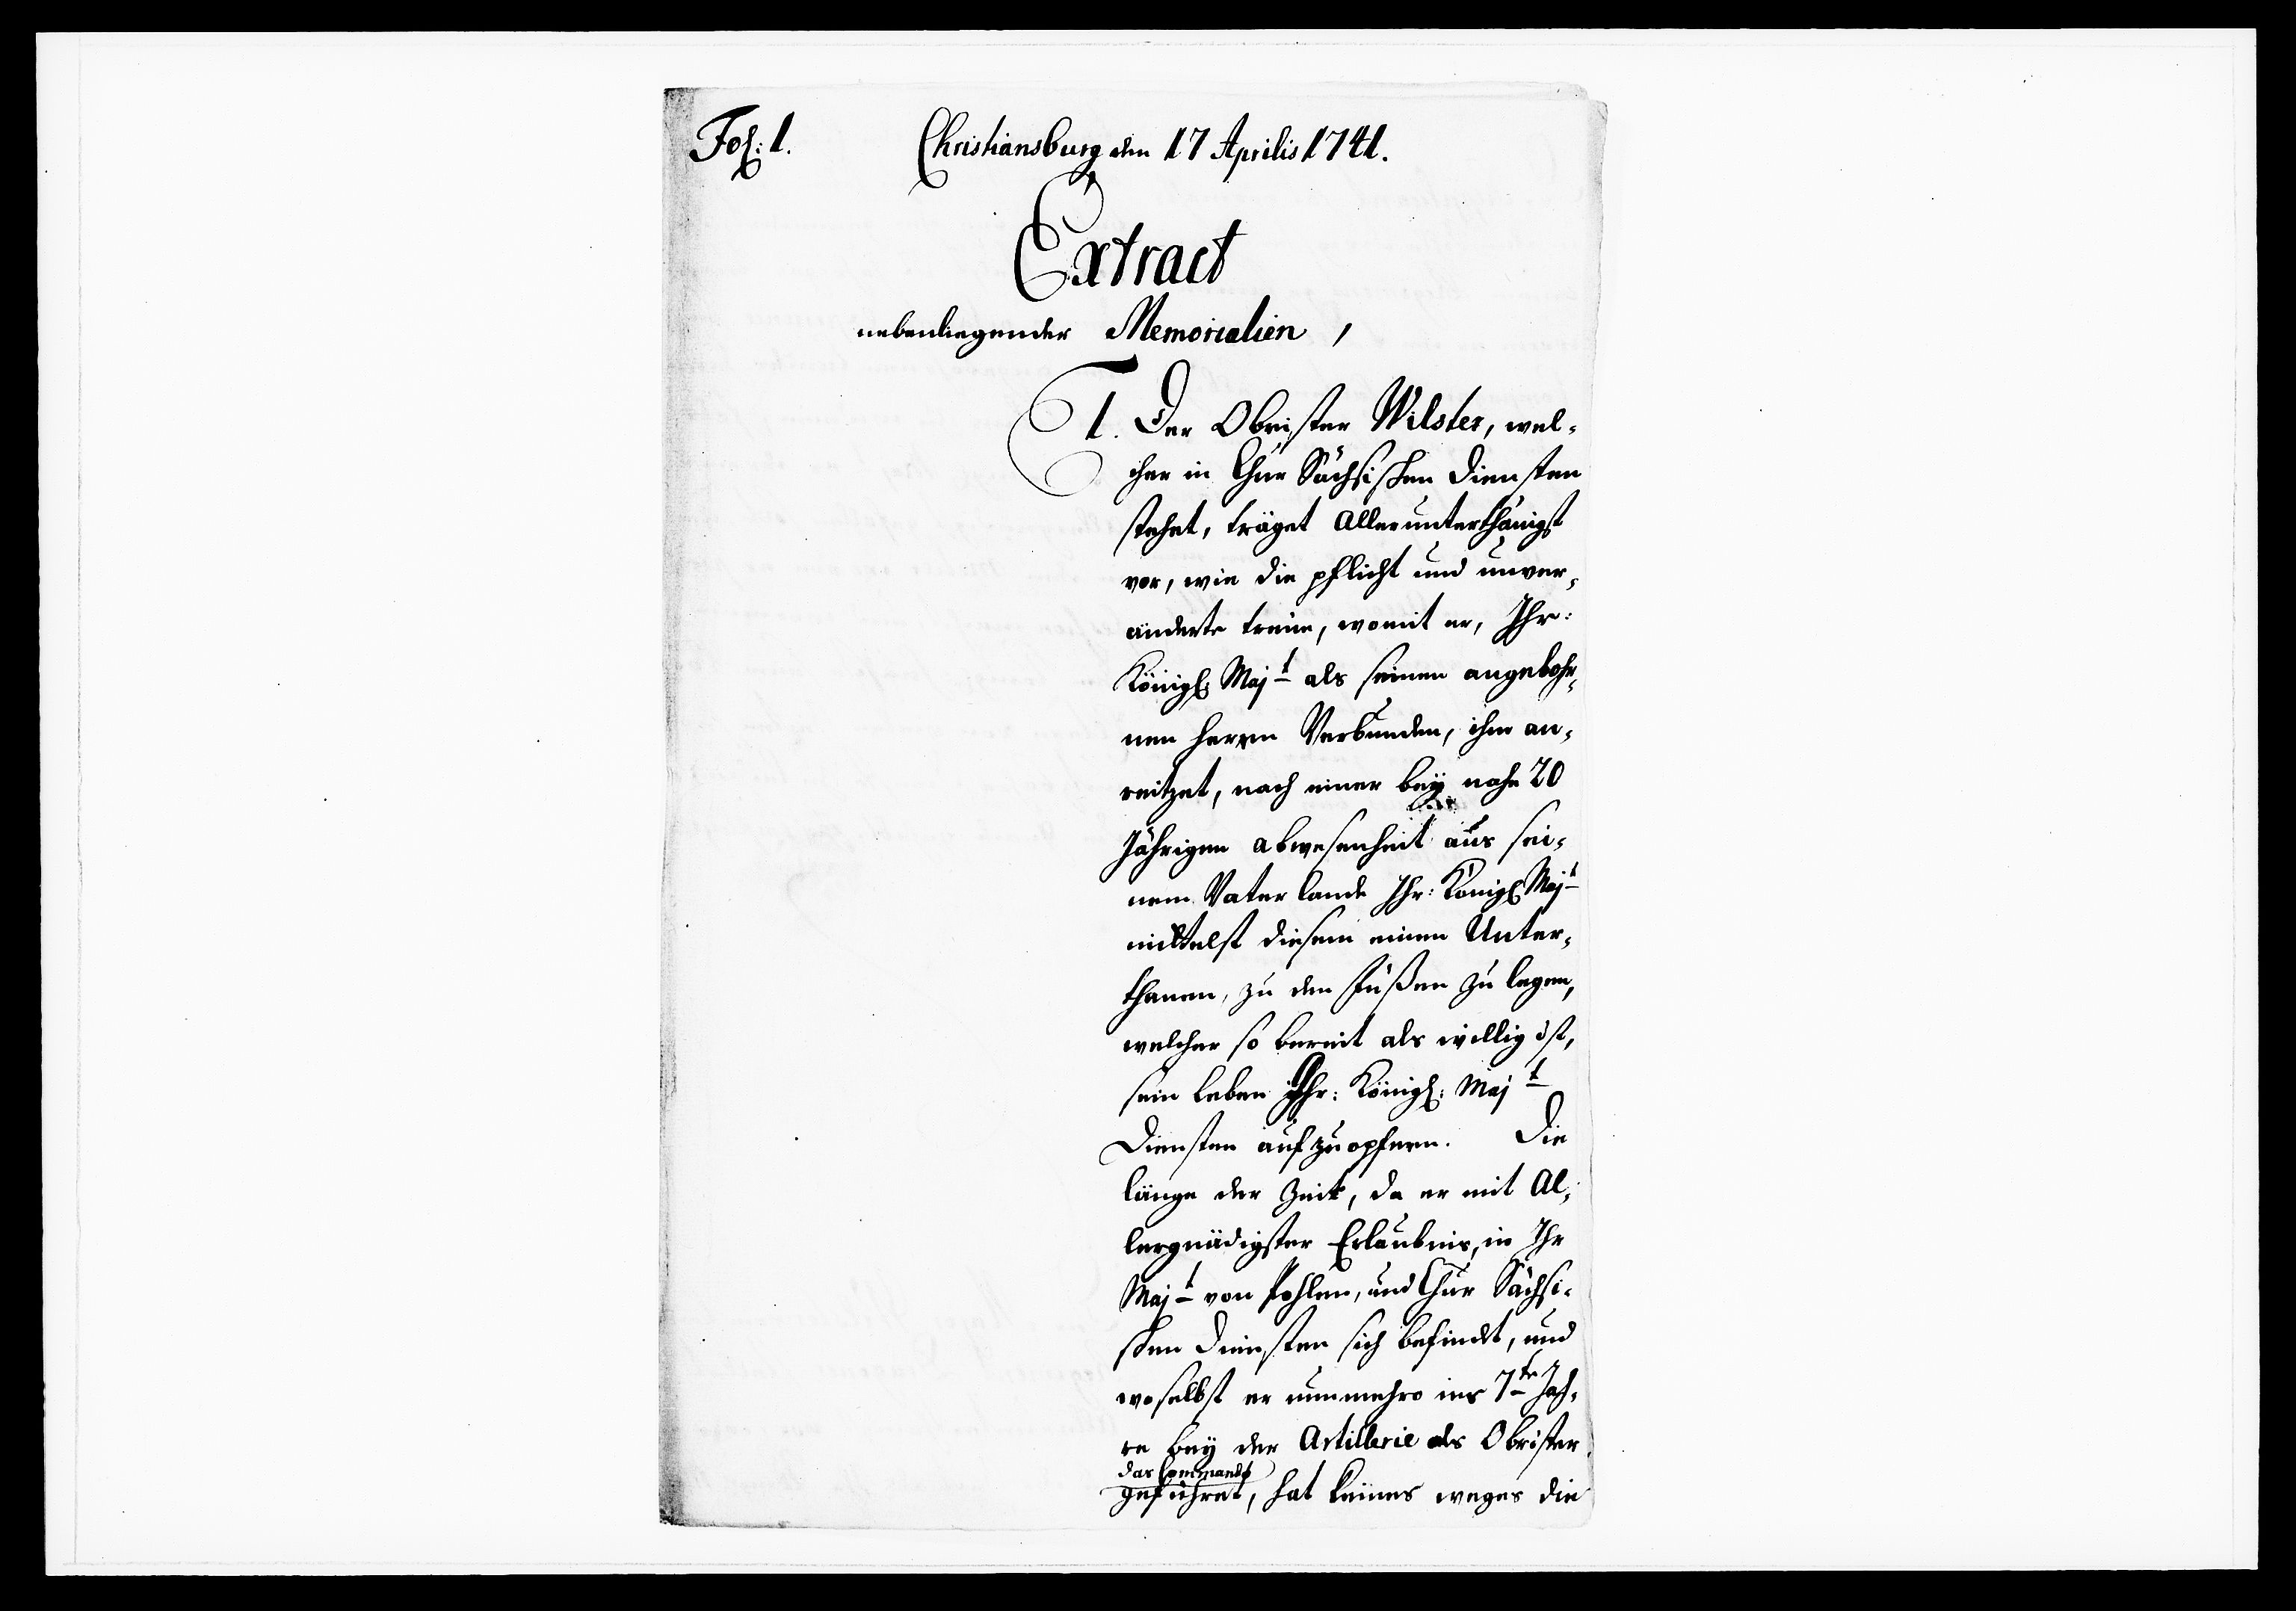 Fol: 1.
Christiansburg den 17 Aprilis 1741.
Extract
nebenliegender Memorialien,
1. Der Obrister Wilster, wel-
cher in Chur Sächsischen Diensten
stehet, träget Allerunterthänigst
vor, wie die pflicht und unver-
änderte treüe, womit er, Ihr:
Königl: Majt als seinen angebohr-
nen Herren Verbunden, ihm an-
reitzet, nach einer beÿ nahe 20
Jährigen abwesenheit aus sei-
nem Vaterlande Ihr: Königl: Majt
mittelst diesem einen Unter-
thanen, zu den Füßen zu legen,
welcher so bereit als willig ist,
sein leben Ihr: Königl: Majt
Diensten aufzuopfern. Die
länge der Zeit, da er mit Al-
lergnädigster Erlaubnis, in Ihr
Majt von Pohlen, und Chur Sächsi-
schen Diensten sich befindt, und
woselbst er nunmehro ins 7te Jah-
re beÿ der Artillerie als Obrister
das Commando
geführet, hat keines weges die